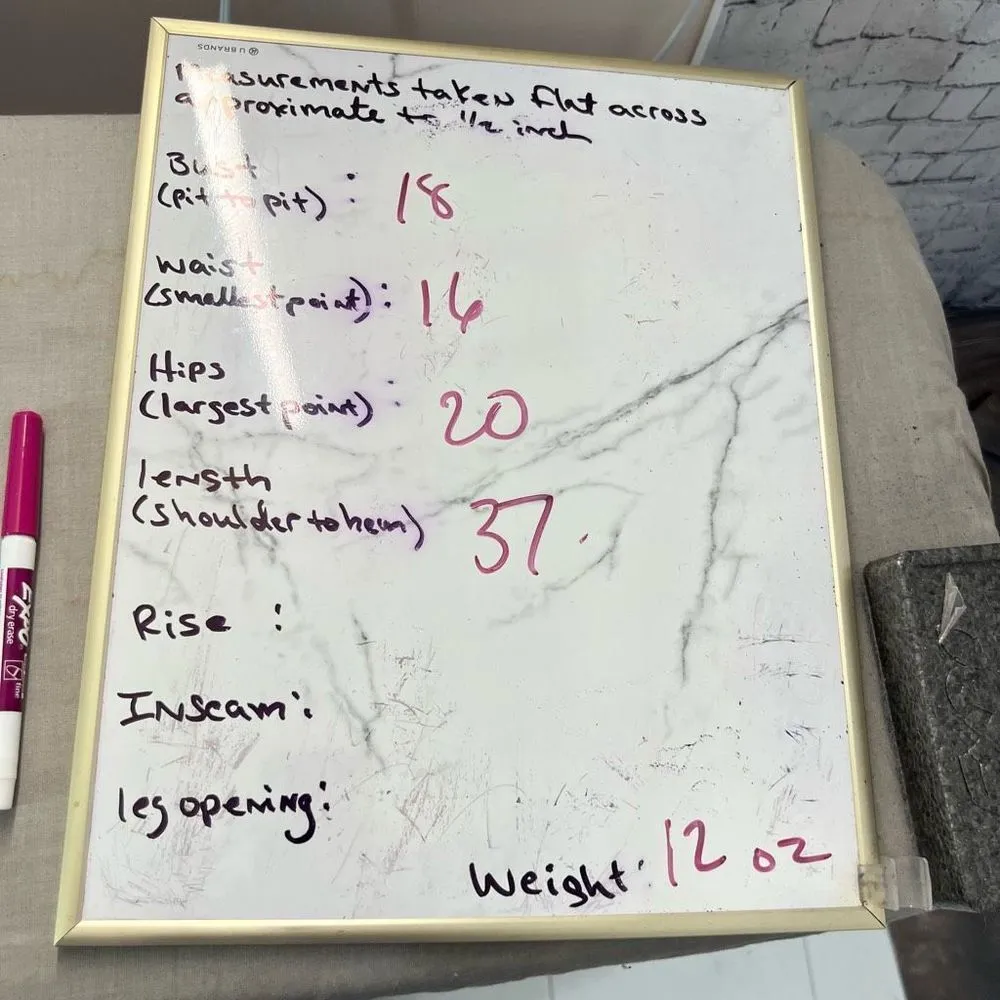 U BRANDS
Measurements taken flat across
approximate to 1/2 inch
Bust
(pit to pit) : 18
waist
(smallest point) : 16
Hips
(largest point) : 20
length
(shoulder to hem) 37
Rise :
Inseam :
leg opening :
Weight : 12 oz
EXPO
dry erase
fine